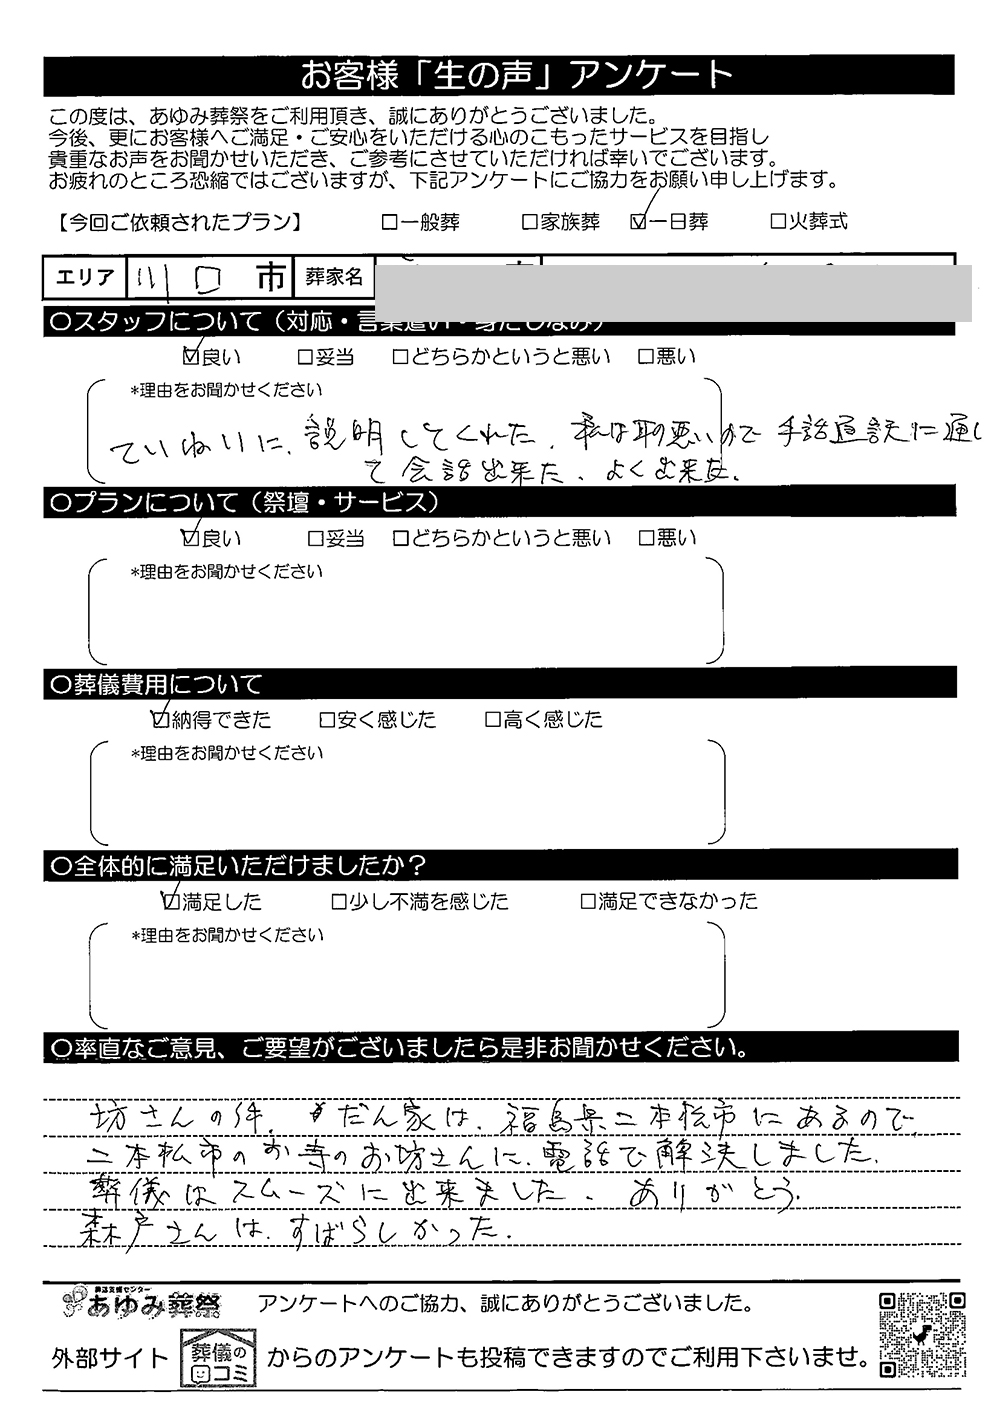 お客様「生の声」アンケート
この度は、あゆみ葬祭をご利用頂き、誠にありがとうございました。
今後、更にお客様へご満足・ご安心をいただける心のこもったサービスを目指し
貴重なお声をお聞かせいただき、ご参考にさせていただければ幸いでございます。
お疲れのところ恐縮ではございますが、下記アンケートにご協力をお願い申し上げます。
【今回ご依頼されたプラン】 □一般葬 □家族葬 ☑一日葬 □火葬式
エリア 川口 市 葬家名
〇スタッフについて（対応・言葉遣い・身だしなみ）
☑良い □妥当 □どちらかというと悪い □悪い
*理由をお聞かせください
ていねいに、説明してくれた、私は耳の悪いので 手話通訳に通し
て会話出来た、よく出来た。
〇プランについて（祭壇・サービス）
☑良い □妥当 □どちらかというと悪い □悪い
*理由をお聞かせください
〇葬儀費用について
☑納得できた □安く感じた □高く感じた
*理由をお聞かせください
〇全体的に満足いただけましたか？
☑満足した □少し不満を感じた □満足できなかった
*理由をお聞かせください
〇率直なご意見、ご要望がございましたら是非お聞かせください。
坊さんの件、だん家は、福島県二本松市にあるので、
二本松市のお寺のお坊さんに、電話で解決しました。
葬儀はスムーズに出来ました、ありがとう。
森戸さんは、すばらしかった。
葬送支援センター
あゆみ葬祭 アンケートへのご協力、誠にありがとうございました。
外部サイト 葬儀の口コミ からのアンケートも投稿できますのでご利用下さいませ。